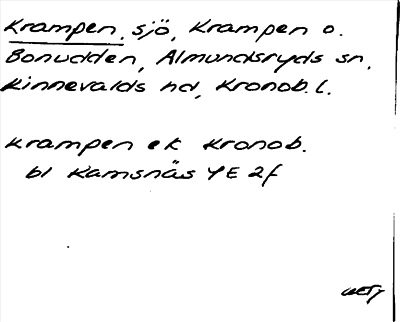 Krampen, sjö, Krampen o.
Bonudden, Almundsryds sn,
Kinnevalds hd, Kronob. l.
Krampen ek Kronob.
bl Ramsnäs 4E 2f